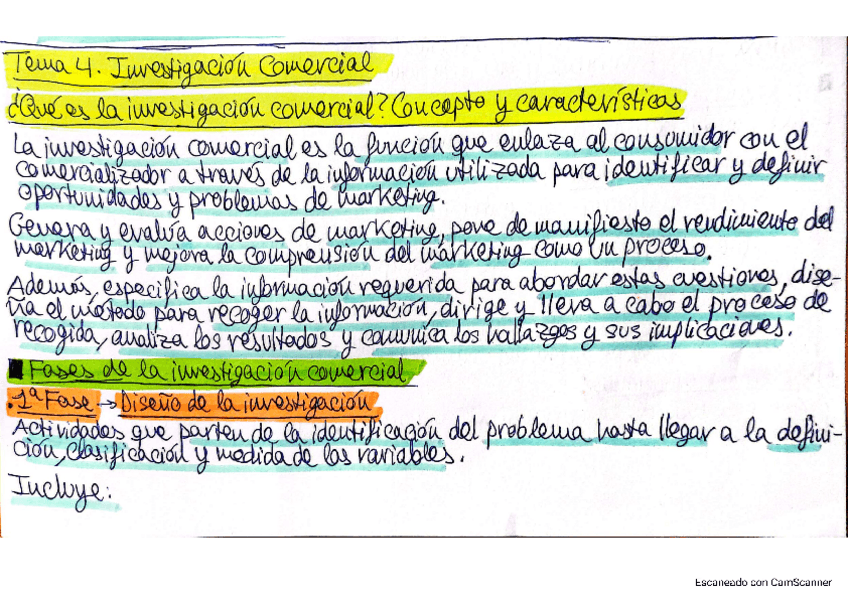 Tema 4. Investigación Comercial
¿Qué es la investigación comercial? Concepto y características
La investigación comercial es la función que enlaza al consumidor con el
comercializador a través de la información utilizada para identificar y definir
oportunidades y problemas de marketing.
Genera y evalúa acciones de marketing, pone de manifiesto el rendimiento del
marketing y mejora la comprensión del marketing como un proceso.
Además, especifica la información requerida para abordar estas cuestiones, dise-
ña el método para recoger la información, dirige y lleva a cabo el proceso de
recogida, analiza los resultados y comunica los hallazgos y sus implicaciones.
Fases de la investigación comercial
1ª Fase → Diseño de la investigación
Actividades que parten de la identificación del problema hasta llegar a la defini-
ción, clasificación y medida de las variables.
Incluye:
Escaneado con CamScanner